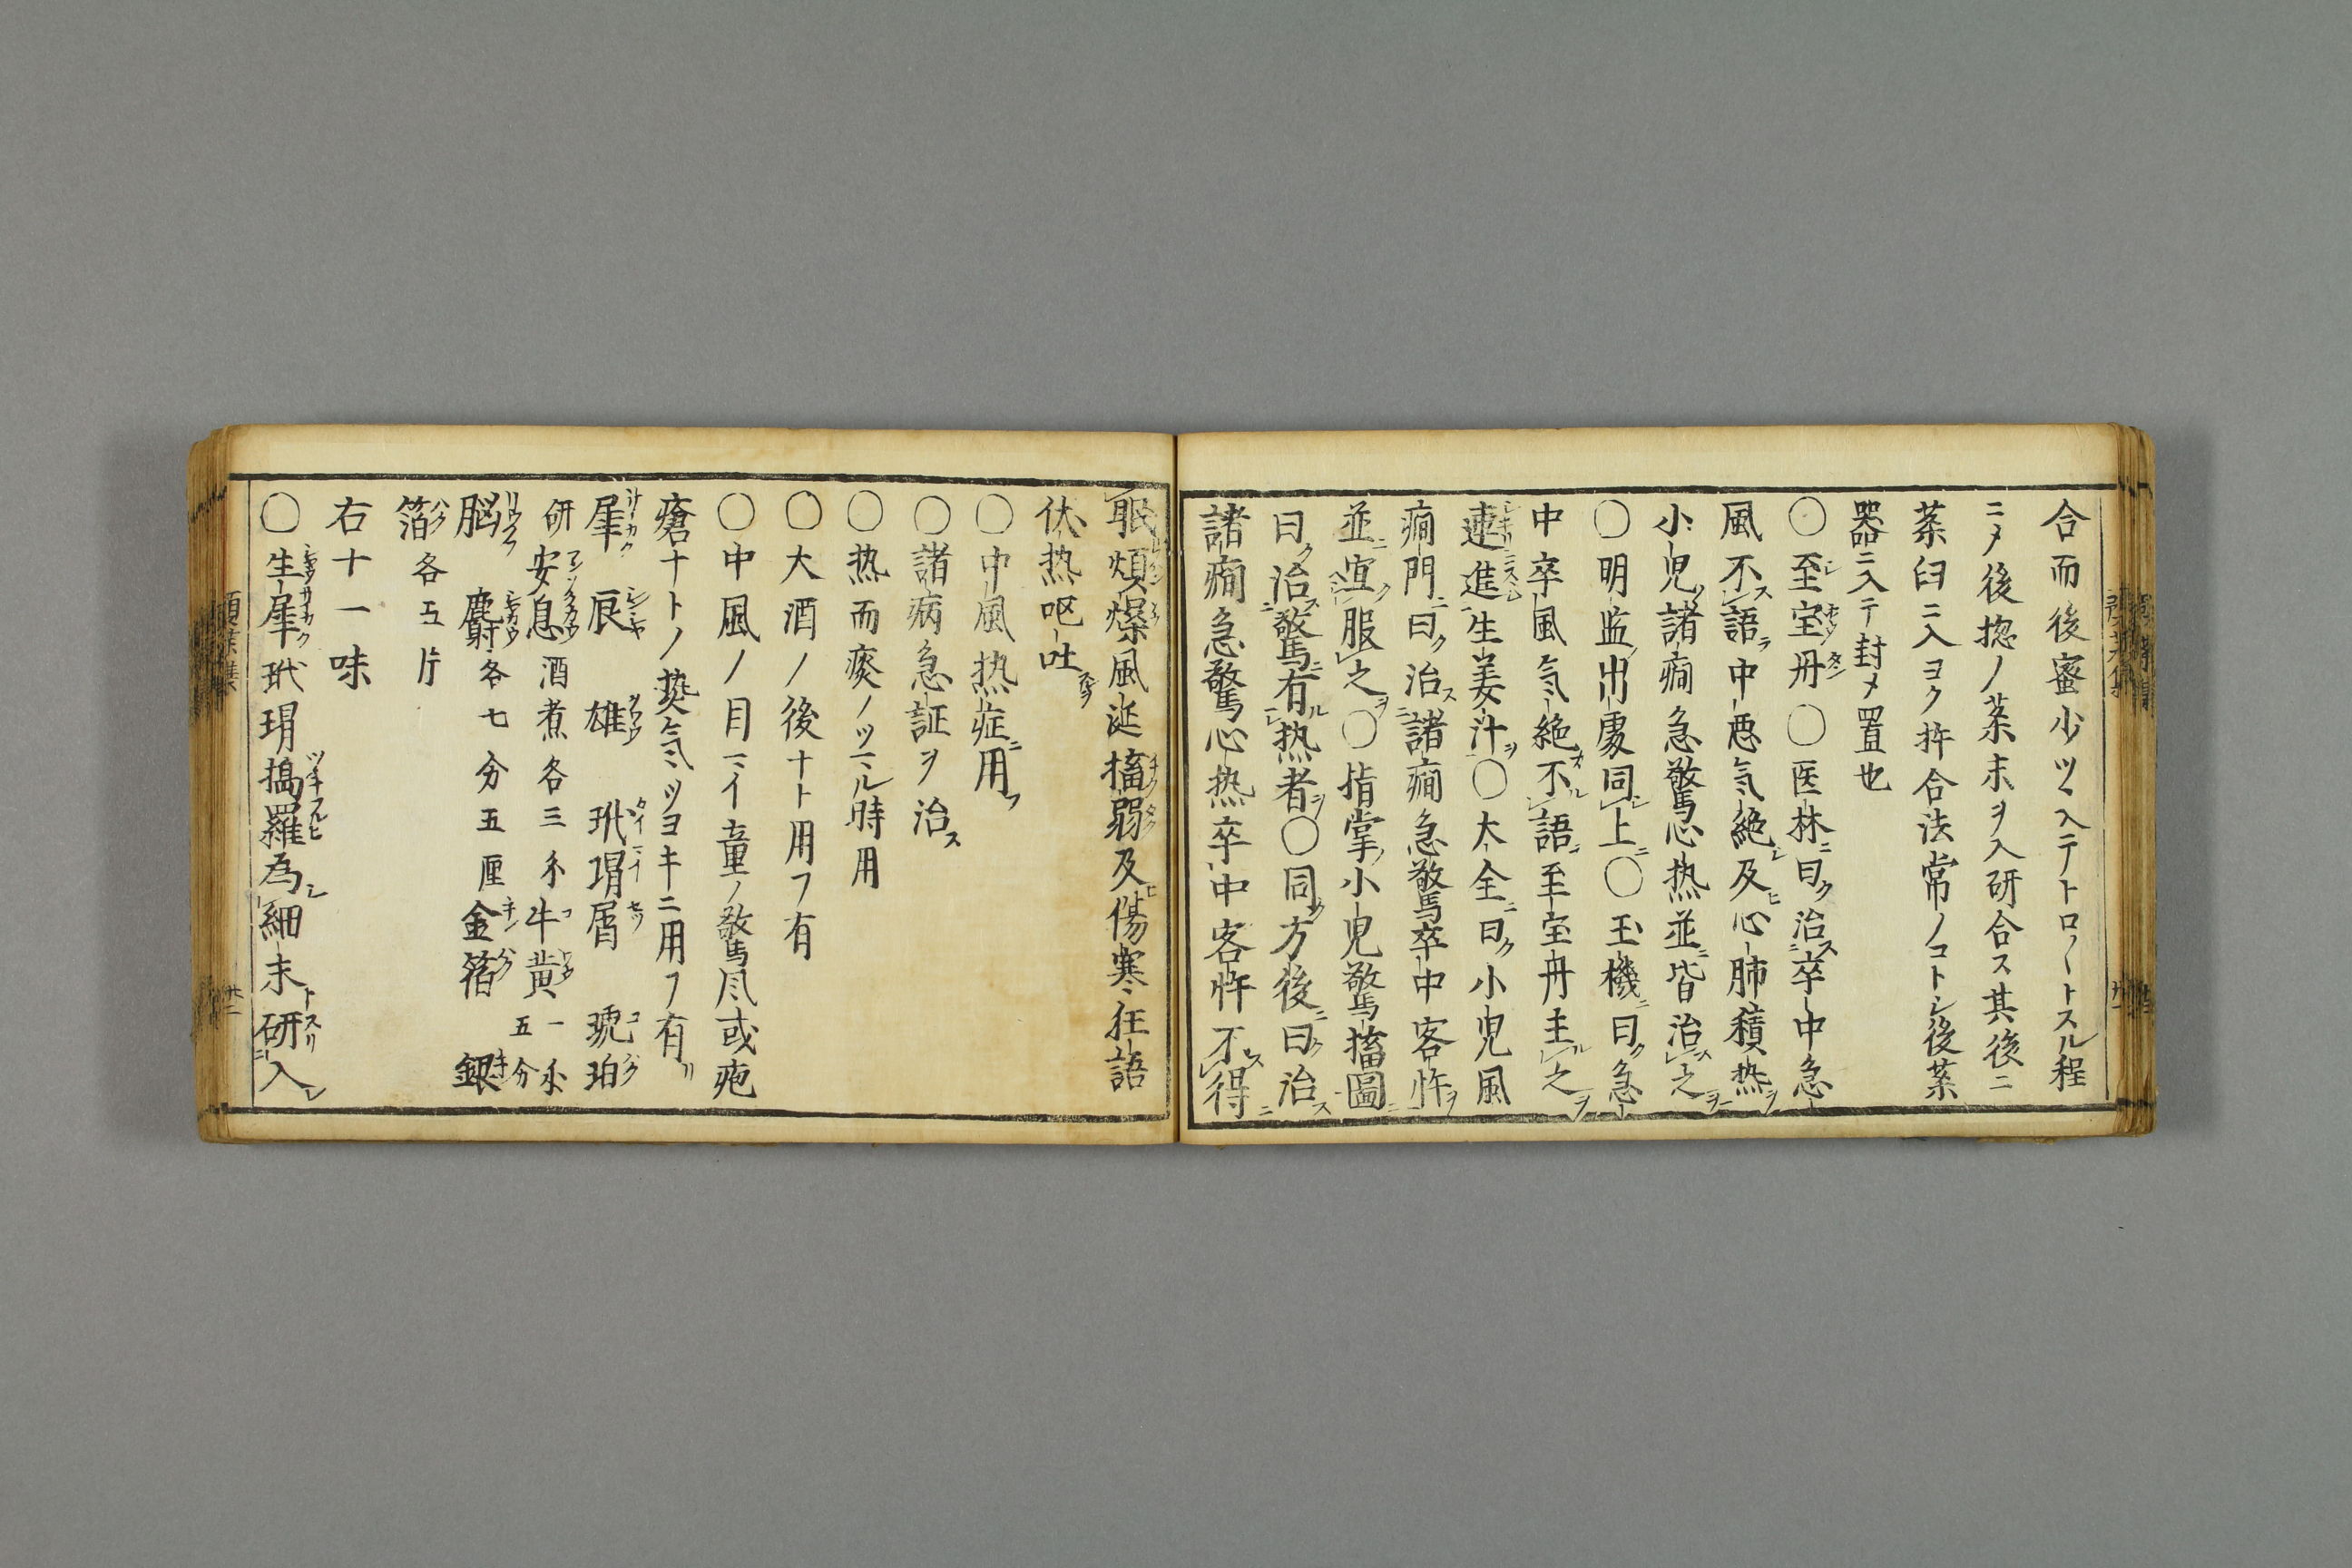 合而後蜜少ツヽ入テトロ〳〵トスル程
ニメ後惣ノ薬末ヲ入研合ス其後ニ
薬臼ニ入ヨク拌合法常ノコトシ後薬
器ニ入テ封メ置也
〇至宝丹〇医林曰治卒中急
風不語中悪気絶及心肺積热
小児諸癇急驚心热並皆治之
〇明监出處同上〇玉機曰急
中卒風気絶不語至宝丹主之
速進生姜汁〇大全曰小児風
癇門曰治諸癇急驚卒中客忤
並宜服之〇指掌小児驚搐圖
曰治驚有热者〇同方後曰治
諸癇急驚心热卒中客忤不得
眠煩燥風涎搐搦及傷寒狂語
伏热呕吐
〇中風热症用
〇諸病急証ヲ治ス
〇热而痰ノツマル時用
〇大酒ノ後ナト用フ有
〇中風ノ目マイ童ノ驚风或疱
瘡ナトノ熱気ツヨキニ用フ有
犀 辰 雄 玳瑁屑 琥珀
研安息酒煮各三 牛黄一 五分
脳 麝各七分五厘金箔 銀
箔各五片
右十一味
〇生犀玳瑁搗羅為細末研入